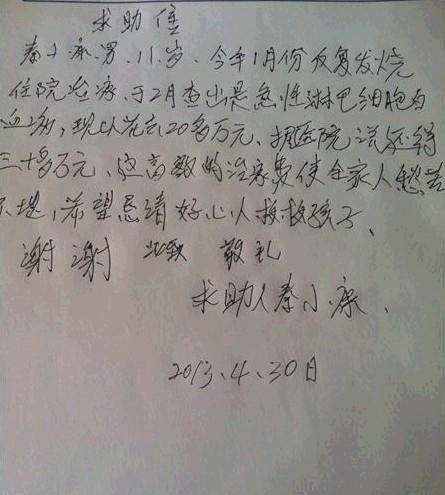 求助信
秦小康.男.11岁.今年1月份反复发烧
住院治疗.于2月查出是急性淋巴细胞白
血病,现以花去20多万元、据医院说还得
三十多万元、这高数的治疗费使全家人愁苦
不堪,希望恳请好心人救救孩子、
谢谢 此致 敬礼
求助人秦小康、
2013、4、30日